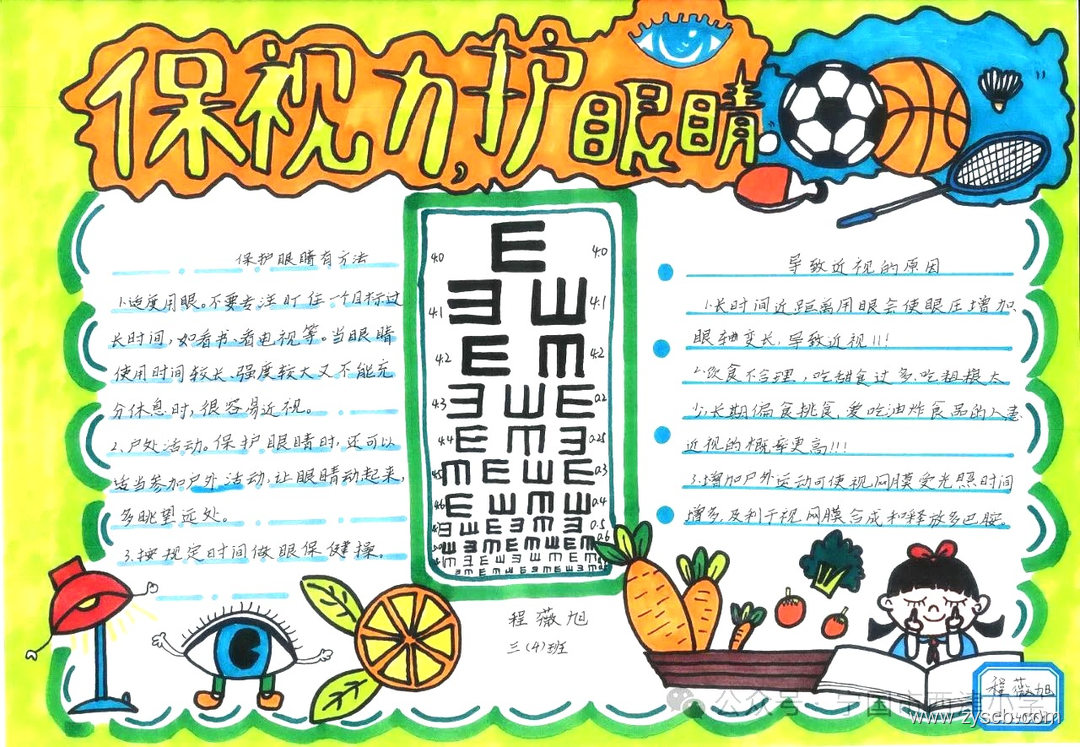 保视力,护眼睛
保护眼睛有方法
1.适度用眼。不要专注盯住一个目标过
长时间,如看书、看电视等。当眼睛
使用时间较长、强度较大又不能充
分休息时,很容易近视。
2.户处活动。保护眼睛时,还可以
适当参加户外活动,让眼睛动起来,
多眺望远处。
3.按规定时间做眼保健操。
4.0 E 4.0
4.1 E E 4.1
4.2 E E 4.2
4.3 E E E 0.2
4.4 E E E 0.25
E E E E 0.3
4.6 E E E E 0.4
0.5
0.6
导致近视的原因
1.长时间近距离用眼会使眼压增加、
眼轴变长,导致近视!!!
2.饮食不合理,吃甜食过多,吃粗粮太
少,长期偏食挑食,爱吃油炸食品的人患
近视的概率更高!!!
3.增加户外运动可使视网膜受光照时间
增多,及利于视网膜合成和释放多巴胺。
程薇旭
三(4)班
程薇旭
公众号·宁国市西津小学
www.zyscb.com